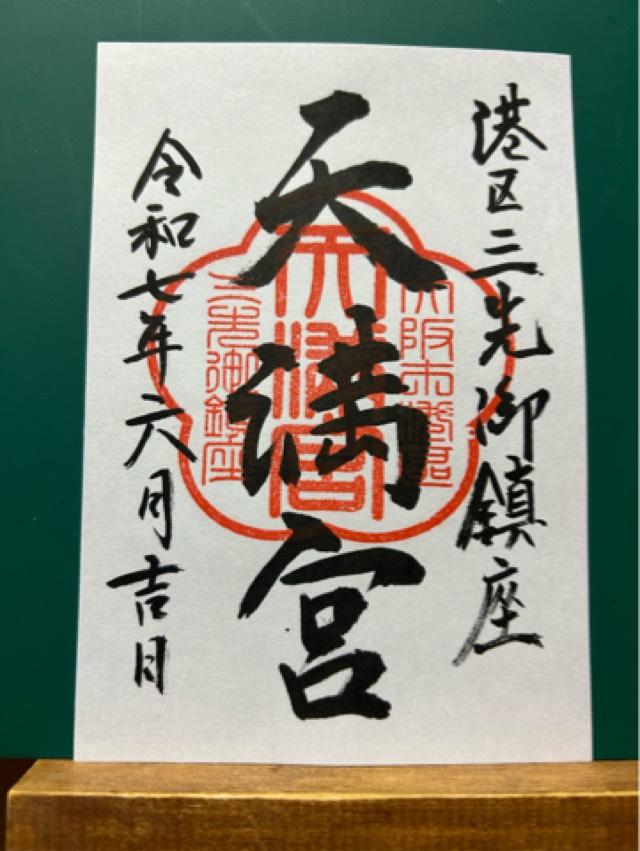 港区三先御鎮座
天満宮
令和七年六月吉日
大阪市港区
天満宮
三先御鎮座